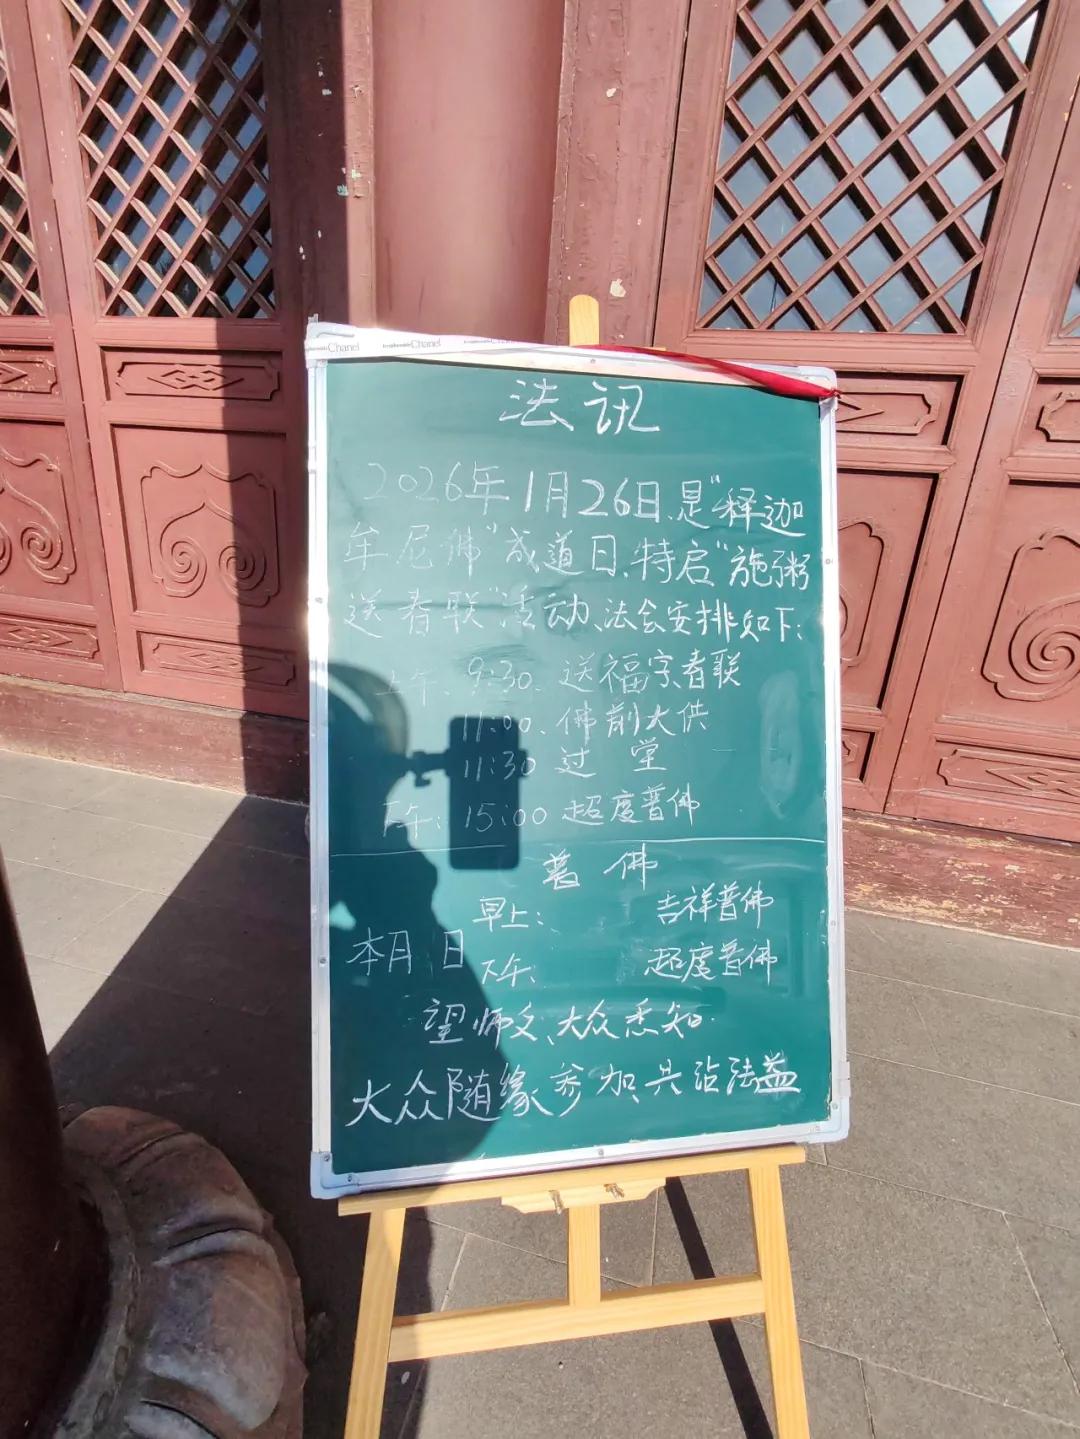 Chanel
Chanel
法讯
2026年1月26日是"释迦
牟尼佛"成道日、特启"施粥
送春联"活动、法会安排如下:
上午、9:30、送福字、春联
11:00、佛前大供
11:30 过堂
下午: 15:00 超度普佛
普佛
早上: 吉祥普佛
本月 日
下午、 超度普佛
望师父、大众悉知.
大众随缘参加、共沾法益